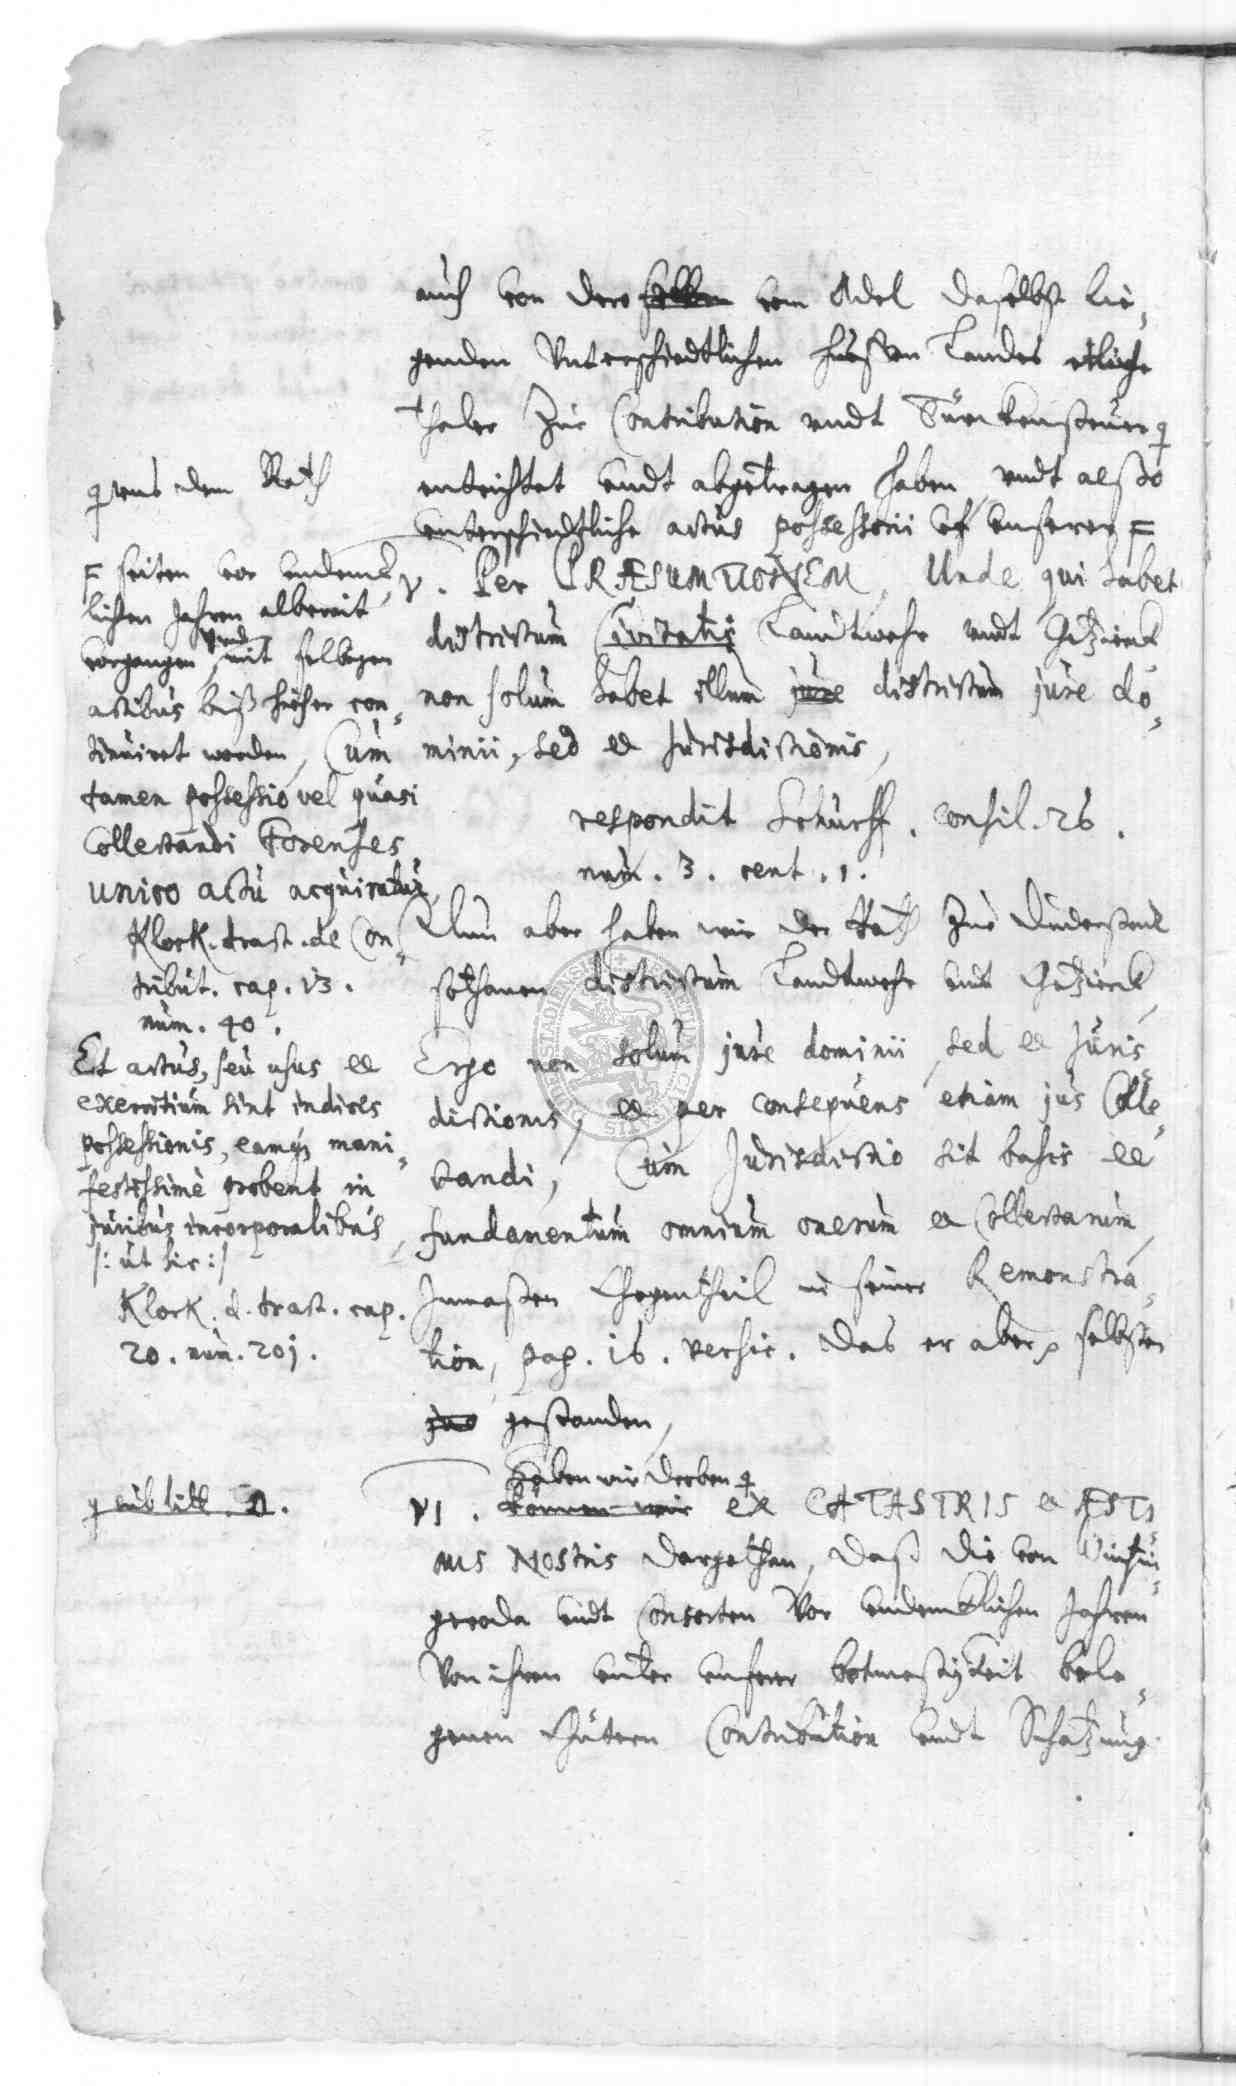 auch von dero selben vom Adel daselbst lie⸗
genden Unterschiedtlichen Hueffen Landes etliche
Thaler Zur Contribution undt Türckensteuer
entrichtet undt abgetragen haben, undt alßo
unterschiedtliche actus possessorii uf unserer
uns dem Rath
seiten vor undenck⸗
lichen Jahren albereit
vorgangen undt mit selbigen
actibus biß hieher con⸗
tinuiret worden, Cum
tamen possessio vel quasi
Collectandi Forenses
unico actu acquiratur,
Klock. tract. de Con⸗
tribut. cap. 13.
num. 40.
Et actus, seu usus et
exercitium sint indices
possessionis, eamq; mani⸗
festissimè probent in
juribus incorporalibus,
/: ut hic :/
Klock. d. tract. cap.
20. num. 201.
V. Per PRÆSUMTIONEM, Unde qui habet
districtum Civitatis Landtwehr undt Gezirck
non solum habet illum jure districtum jure do⸗
minii, sed et Jurisdictionis,
respondit Schurff. consil. 26.
num. 3. cent. 1.
Nun aber haben wir der Rath Zue Duderstadt
sothanen districtum Landtwehr undt Gezirck,
Ergo non solum jure dominii, sed et Juris⸗
dictionis, et per consequens etiam jus Colle⸗
ctandi, Cum Jurisdictio sit basis et
fundamentum omnium onerum et Collectarum,
Inmaßen Gegentheil in seiner Remonstra⸗
tion, pag. 16. versic. das er aber selbsten
gestanden,
sub litt. A.
haben wir droben
VI. können wir EX CATASTRIS et ÆSTI⸗
MIS NOSTRIS dargethan, daß die von Wintzin⸗
geroda undt Consorten Vor undencklichen Jahren
Von ihren unter unserer botmeßigkeit bele⸗
genen Gütern Contribution undt Schatzung